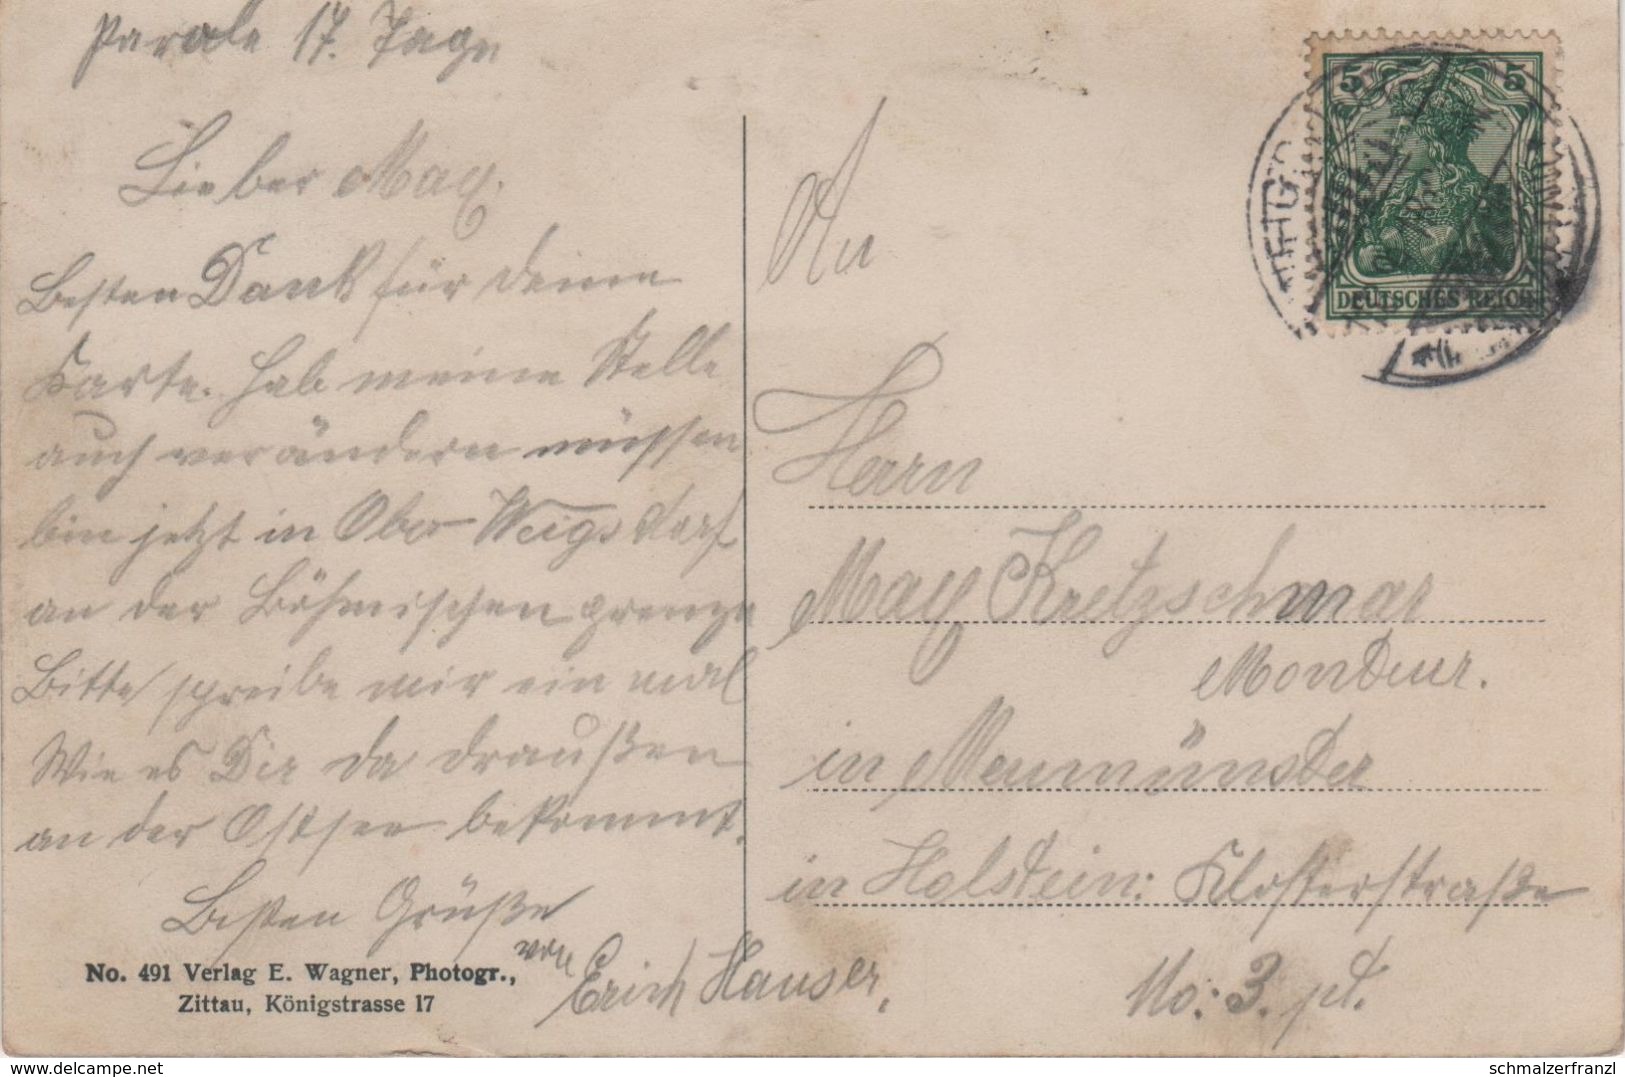 Parole 17. Tage
Lieber Max.
Besten Dank für deine
Karte. Hab meine Stelle
auch verändern müssen
bin jetzt in Ober Weigsdorf
an der Böhmischen grenze
Bitte schreibe mir ein mal
Wie es Dir da draußen
an der Ostsee bekommt.
Besten Grüße
von Erich Hauser,
No. 491 Verlag E. Wagner, Photogr.,
Zittau, Königstrasse 17
5 5
DEUTSCHES REICH
An
Herrn
Max Kretzschmar
Mondeur.
in Neumünster
in Holstein: Klosterstraße
No: 3. pt.
schmalzerfranzl
www.delcampe.net